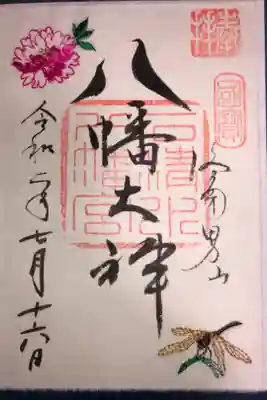 奉拝
国宝
洛南男山
八幡大神
石清水
八幡宮
令和二年七月十六日